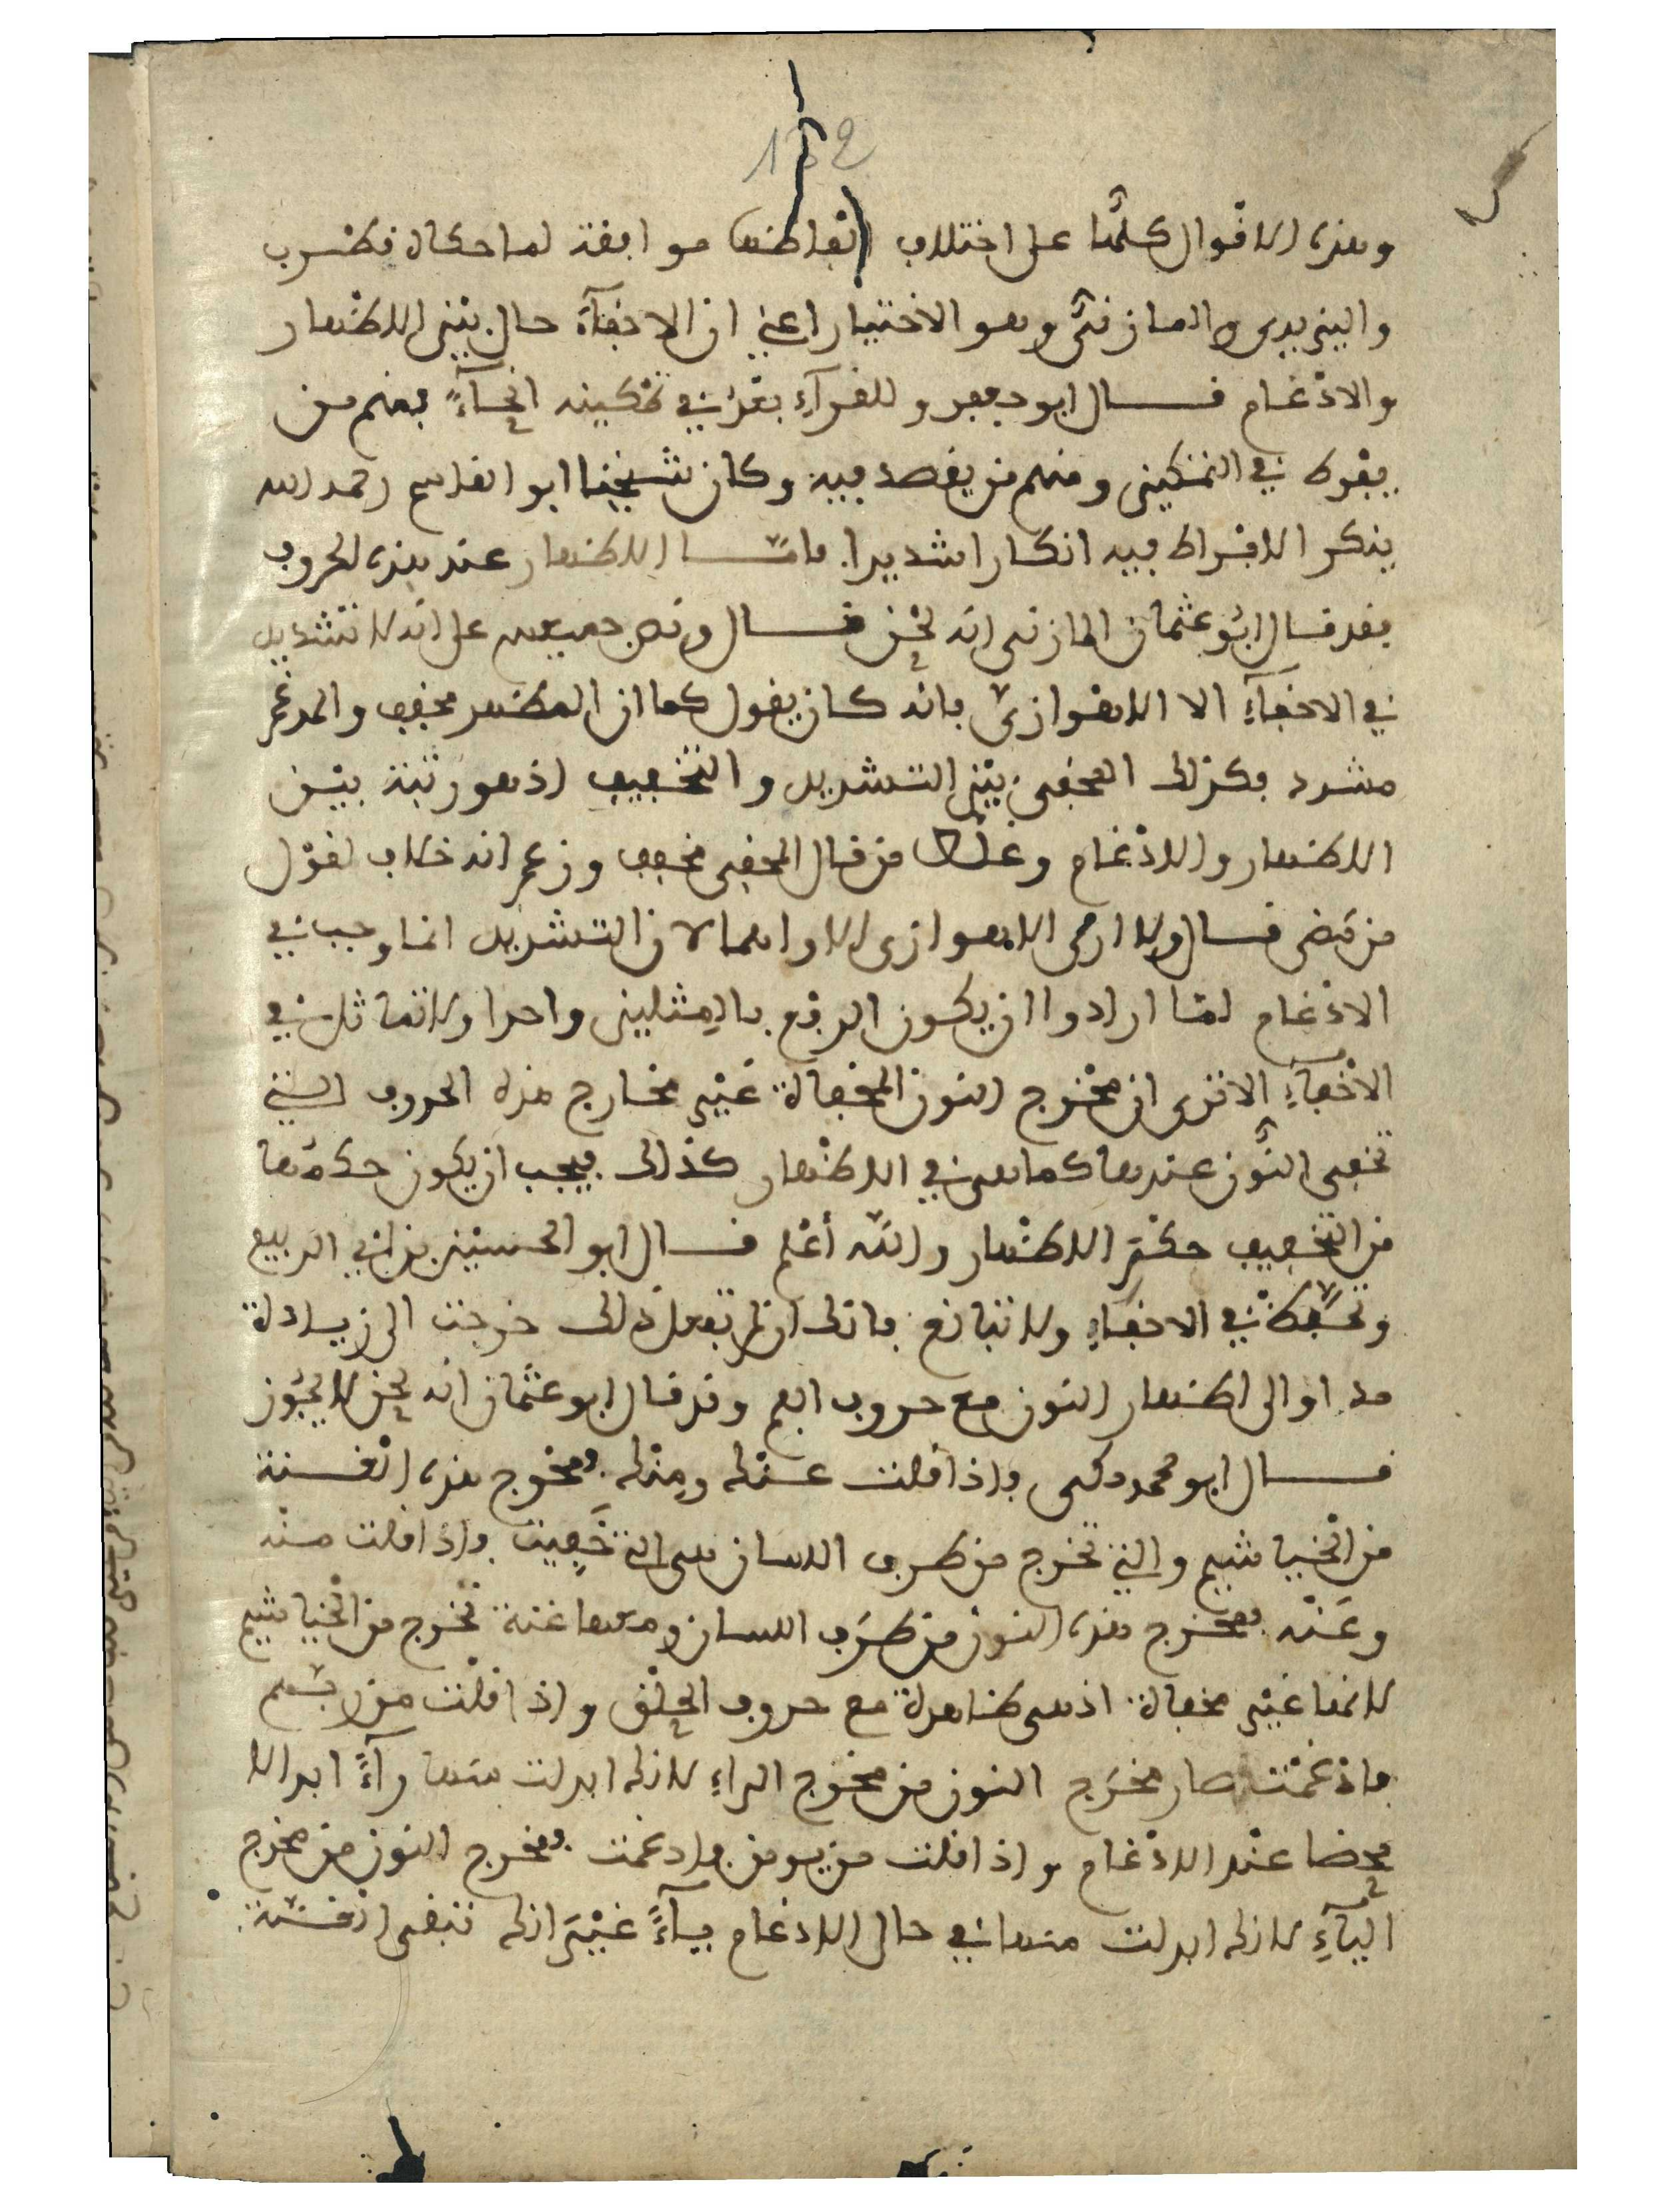 152
وهذه الاقوال كلها على اختلاف الفاظها موافقة لما حكاه قطرب
واليزيدي والمازني وهو الاختيار اعني ان الاخفآء حال بين الاظهار
والادغام قال ابو جعفر وللقرآء بعد في تمكينه انحآء فمنهم من
يفرط في التمكين ومنهم من يقصد فيه وكان شيخنا ابو القاسم رحمه الله
ينكر الافراط فيه انكارا شديدا فاما الاظهار عند هذه الحروف
فقد قال ابو عثمان المازني انه لحن قال ونص جميعهم على انه لا تشديد
في الاخفآء الا الاهوازي فانه كان يقول كما ان المظهر مخفف والمدغم
مشدد فكذلك المخفى بين التشديد والتخفيف اذ هو رتبة بين
الاظهار والادغام وغلط من قال المخفى مخفف وزعم انه خلاف لقول
من مضى قال ولا ارى الاهوازي الا واهما لان التشديد انما وجب في
الادغام لما ارادوا ان يكون الرفع بالمثلين واحدا ولا تماثل في
الاخفآء الا ترى ان مخرج النون المخفاة غير مخارج هذه الحروف التي
تخفى النون عندها كما هي في الاظهار كذلك فيجب ان يكون حكمها
من التخفيف حكم الاظهار والله أعلم قال ابو الحسين بن ابي الربيع
وتحفظ في الاخفاء ولا تبالغ فانك ان لم تفعل ذلك خرجت الى زيادة
مد او الى اظهار النون مع حروف الفم وقد قال ابو عثمان انه لحن لا يجوز
قال ابو محمد مكي فاذا قلت عنك ومنك فمخرج هذه الغنة
من الخياشيم والتي تخرج من طرف اللسان هي التي خفيت واذا قلت منه
وعنه فمخرج هذه النون من طرف اللسان ومعها غنة تخرج من الخياشيم
لانها غير مخفاة اذ هي ظاهرة مع حروف الحلق واذا قلت من ربهم
فادغمت صار مخرج النون من مخرج الراء لانك ابدلت منها رآء ابدالا
محضا عند الادغام واذا قلت من يومن فادغمت فمخرج النون من مخرج
اليآء لانك ابدلت منها في حال الادغام يآء غير انك تبقي الغنة